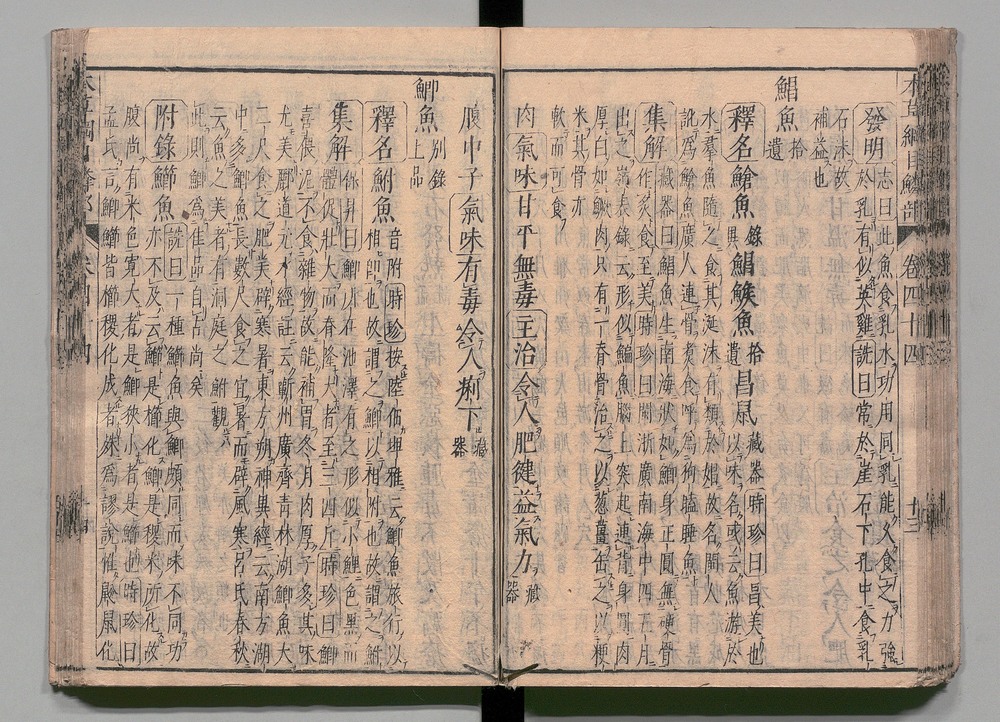 發明 志曰此魚食乳水功用同乳能久食之力強
於乳有似英雞詵曰常於崖石下孔中食乳
石沫故
補益也
鯧魚 拾遺
釋名 鯧魚 錄異 鯧鯸魚 拾遺 昌鼠 藏器 時珍曰昌美也
以味名或云魚游於
水羣魚隨之食其涎沫有類於娼故名閩人
訛爲鯧魚廣人連骨煮食呼爲狗瞌睡魚
集解 藏器曰鯧魚生南海狀如鯽身正圓無硬骨
作炙食至美時珍曰閩浙廣南海中四五月
出之嶺表錄云形似鯿魚腦上突起連背身圓肉
厚白如鱖肉只有一脊骨治之以葱薑缶之以粳
米其骨亦
軟而可食
肉 氣味 甘平無毒 主治 令人肥健益氣力 藏器
腹中子 氣味 有毒令人痢下 藏器
鯽魚 別錄上品
釋名 鮒魚 音附 時珍按陸佃埤雅云鯽魚旅行以
相卽也故謂之鯽以相附也故謂之鮒
集解 保昇曰鯽所在池澤有之形似小鯉色黑而
體促肚大而脊隆大者至三四斤時珍曰鯽
喜偎泥不食雜物故能補胃冬月肉厚子多其味
尤美酈道元水經註云蘄州廣齊青林湖鯽魚大
二尺食之肥美辟寒暑東方朔神異經云南方湖
中多鯽魚長數尺食之宜暑而辟風寒呂氏春秋
云魚之美者有洞庭之鮒觀
此則鯽爲佳品自古尚矣
附錄 鰤魚 詵曰一種鰤魚與鯽頗同而味不同功
亦不及云鰤是櫛化鯽是稷米所化故
腹尚有米色寛大者是鯽狹小者是鰤也時珍曰
孟氏言鯽鰤皆櫛稷化成者殊爲謬說惟鼢鼠化